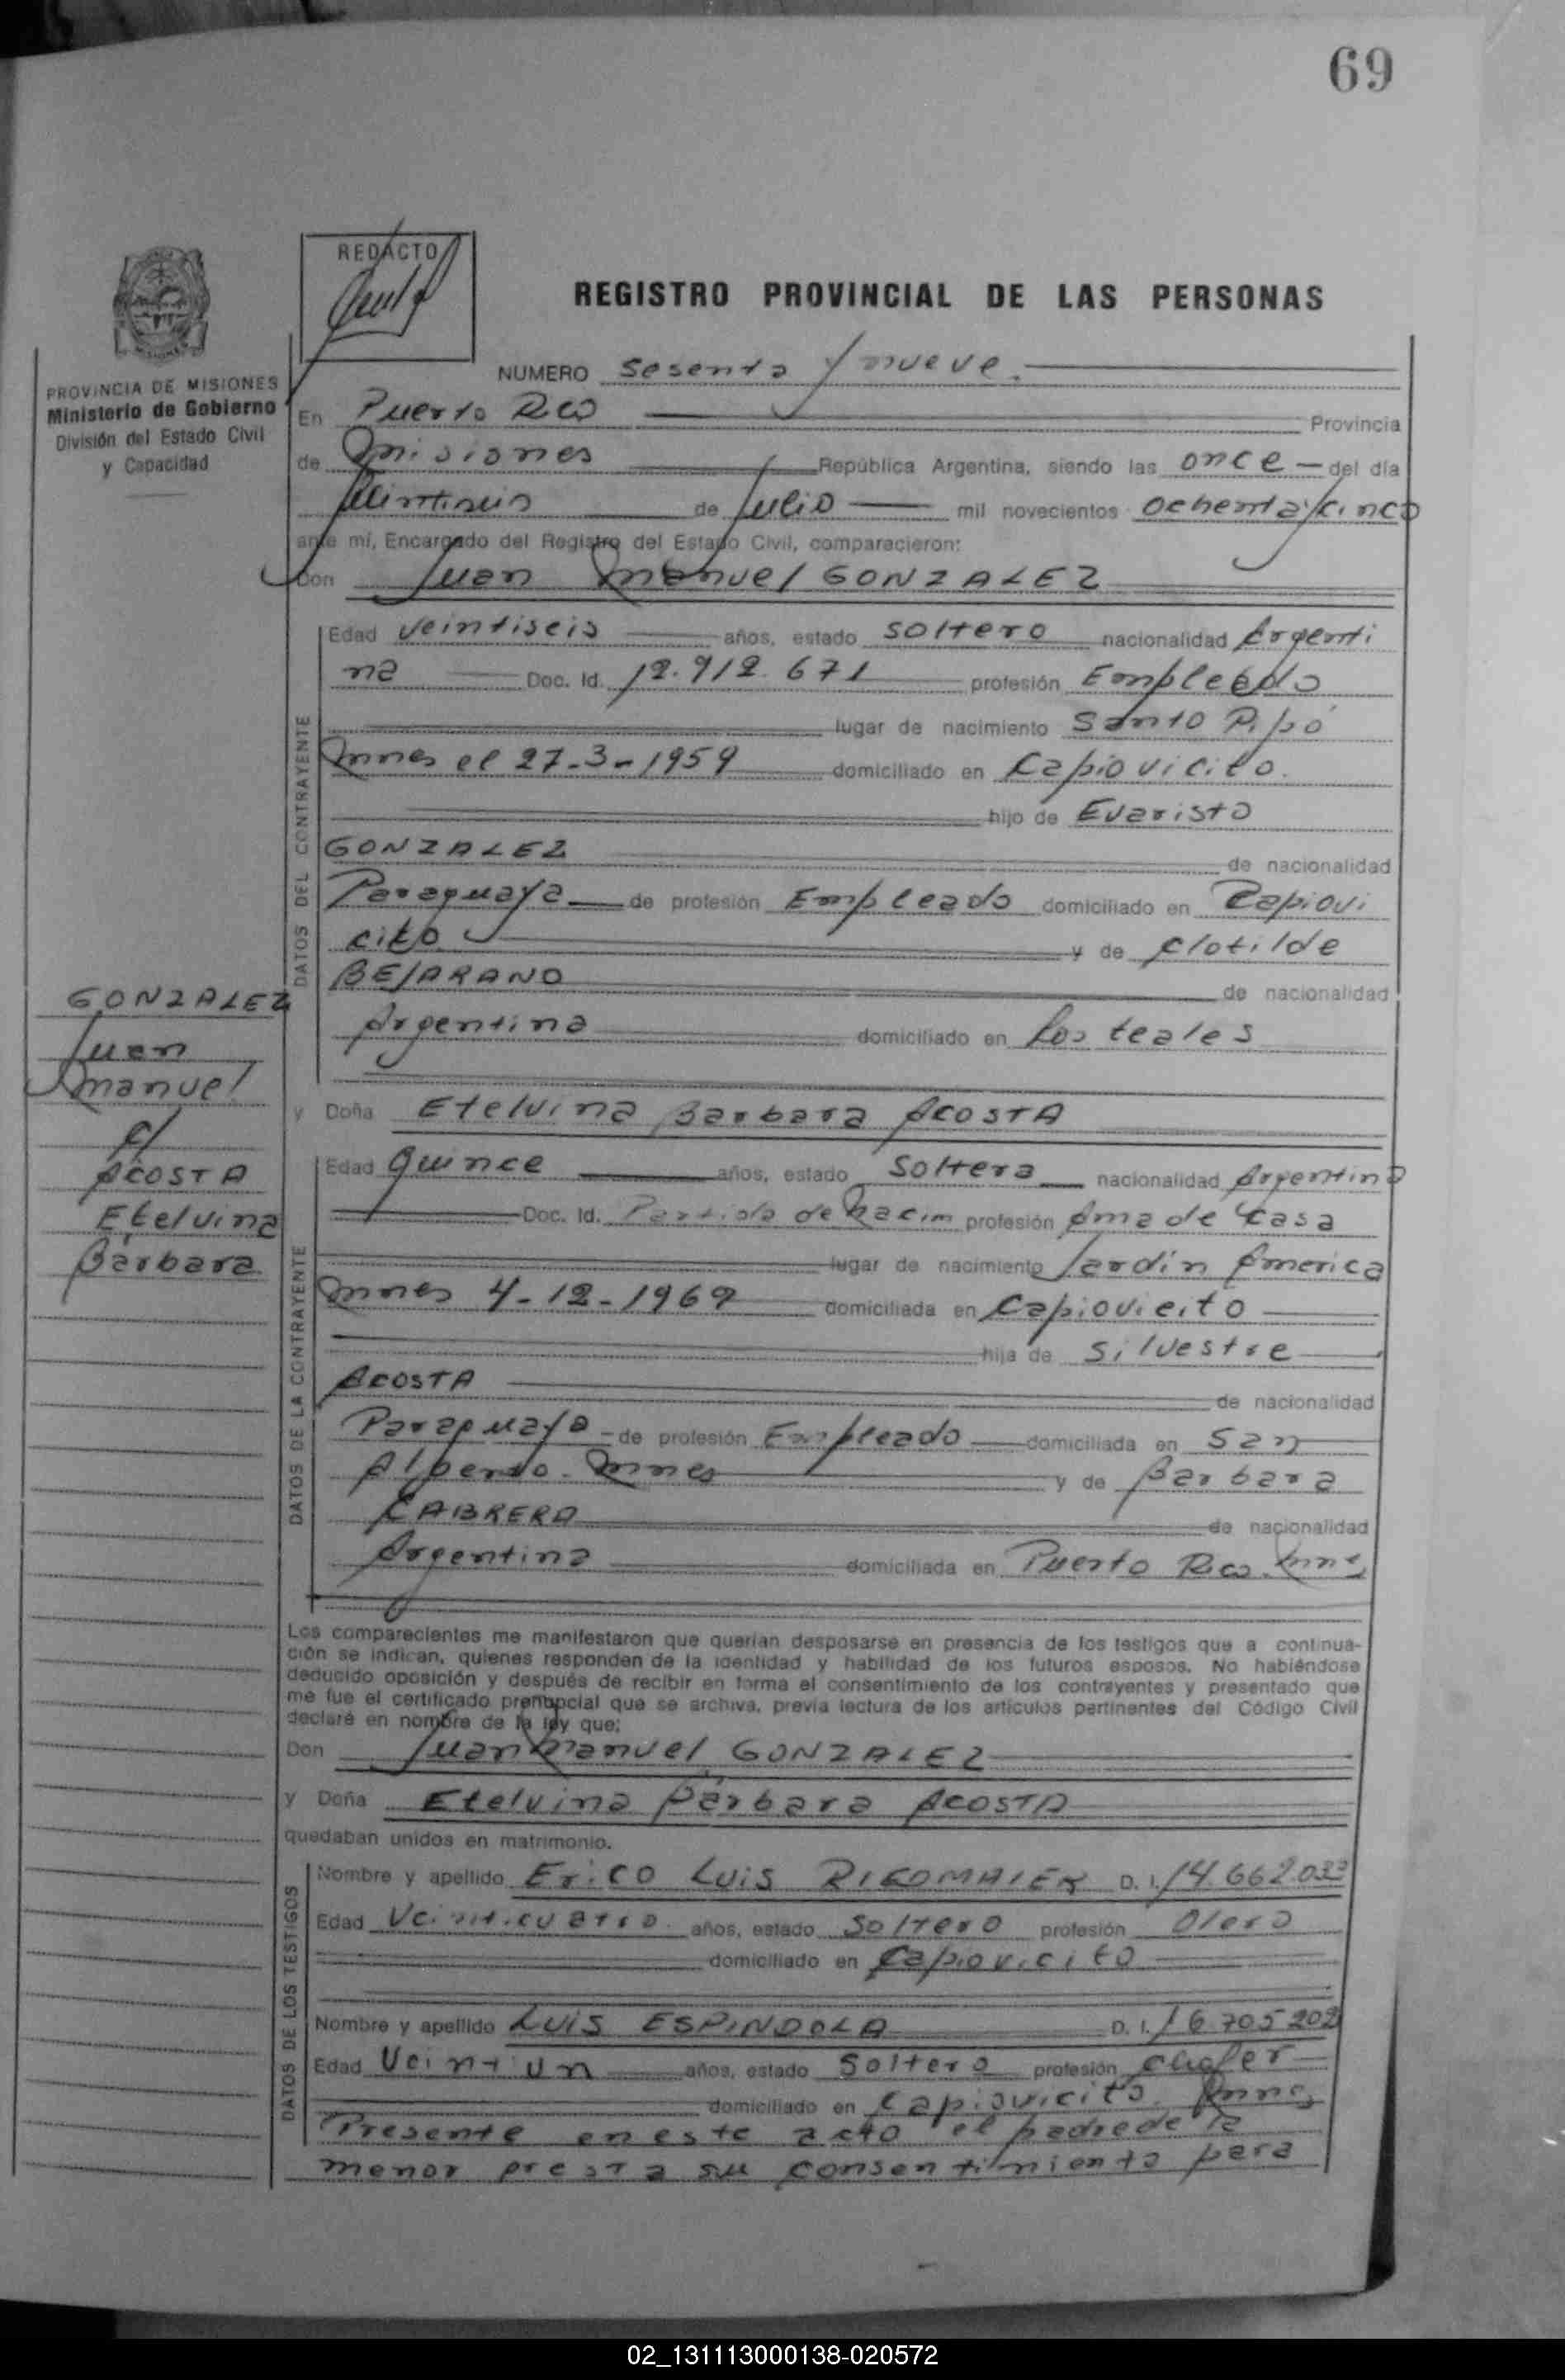 69
REDACTO
REGISTRO PROVINCIAL DE LAS PERSONAS
PROVINCIA DE MISIONES
Ministerio de Gobierno
División del Estado Civil
y Capacidad
NUMERO sesenta y nueve.
En Puerto Rico Provincia
de Misiones República Argentina, siendo las once del día
de Julio mil novecientos ochenta y cinco
ante mí, Encargado del Registro del Estado Civil, comparacieron:
Don Juan Manuel GONZALEZ
DATOS DEL CONTRAYENTE
Edad veintiseis años, estado soltero nacionalidad Argenti
na Doc. Id. 12.912.671 profesión Empleado
lugar de nacimiento Santo Pipó
Mnes el 27-3-1959 domiciliado en Capiovicito.
hijo de Evaristo
GONZALEZ de nacionalidad
Paraguaya de profesión Empleado domiciliado en Capiovi
cito y de Clotilde
BEJARANO de nacionalidad
Argentina domiciliado en Los teales
GONZALEZ
Juan
Manuel
c/
ACOSTA
Etelvina
Bárbara
y Doña Etelvina Barbara ACOSTA
DATOS DE LA CONTRAYENTE
Edad quince años, estado soltera nacionalidad Argentina
Doc. Id. Partida de Nacim profesión Ama de Casa
lugar de nacimiento Jardín America
Mnes 4-12-1969 domiciliada en Capiovicito
hija de Silvestre
ACOSTA de nacionalidad
Paraguaya de profesión Empleado domiciliada en San
Alberto. Mnes y de Barbara
CABRERA de nacionalidad
Argentina domiciliada en Puerto Rico. Mnes
Los comparecientes me manifestaron que querían desposarse en presencia de los testigos que a continua-
ción se indican, quienes responden de la identidad y habilidad de los futuros esposos. No habiéndose
deducido oposición y después de recibir en forma el consentimiento de los contrayentes y presentado que
me fue el certificado prenupcial que se archiva, previa lectura de los artículos pertinentes del Código Civil
declaré en nombre de la ley que:
Don Juan Manuel GONZALEZ
y Doña Etelvina Bárbara ACOSTA
quedaban unidos en matrimonio.
DATOS DE LOS TESTIGOS
Nombre y apellido Erico Luis D. I. 14.662.033
Edad Veinticuatro. años, estado soltero profesión Olero
domiciliado en Capiovicito
Nombre y apellido LUIS ESPINDOLA D. I. 16.705.202
Edad Veintiun años, estado Soltero profesión chofer
domiciliado en Capiovicito. Mnes
Presente en este acto el padre de la
menor presta su consentimiento para
02_131113000138-020572